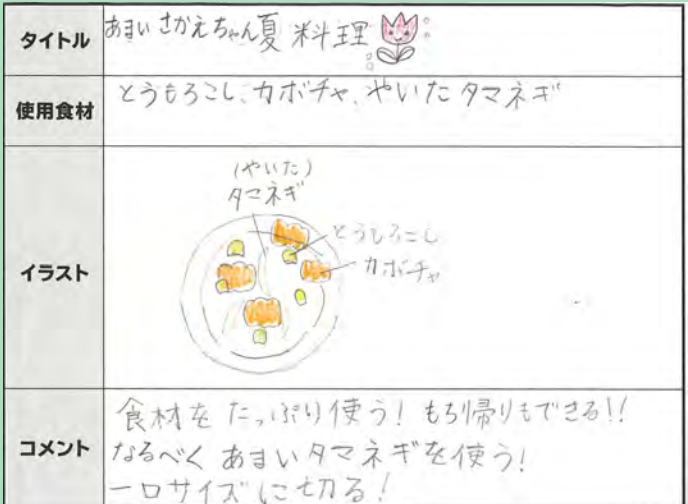 タイトル
あまい さかえちゃん夏 料理
使用食材
とうもろこし、カボチャ、やいた タマネギ
イラスト
(やいた)
タマネギ
とうもろこし
カボチャ
コメント
食材を たっぷり使う! もち帰りもできる!!
なるべく あまい タマネギを使う!
一口サイズに切る!